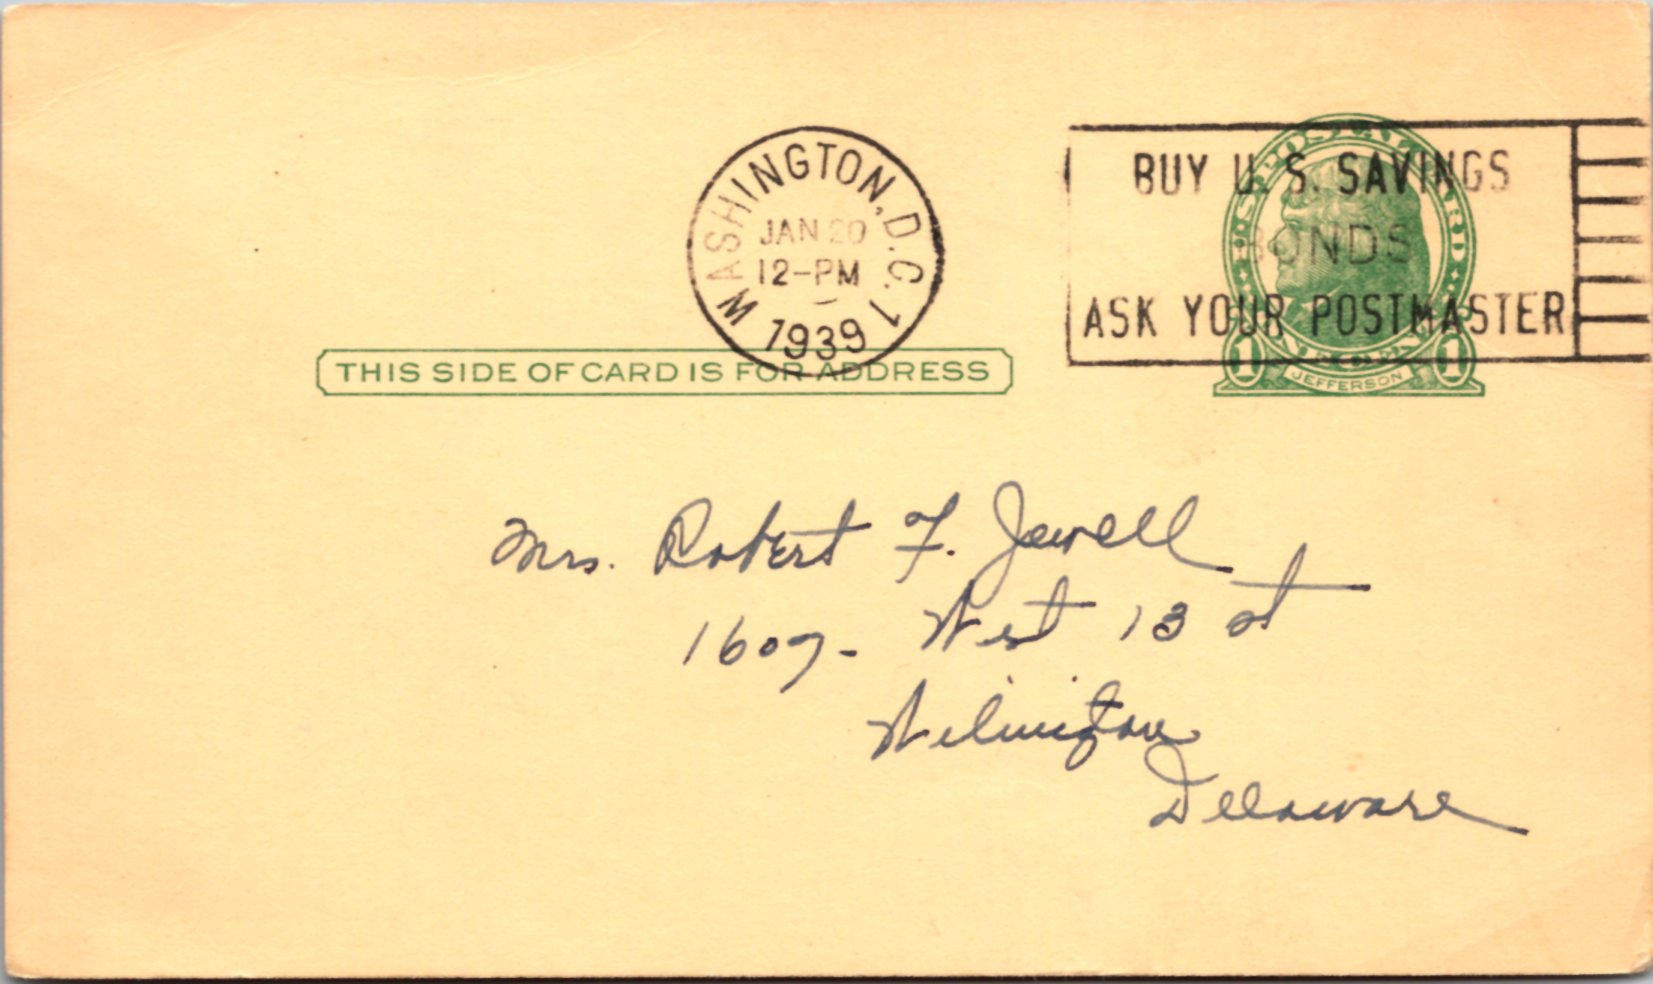 WASHINGTON, D.C. 1
JAN 20
12-PM
1939
BUY U. S. SAVINGS
BONDS
ASK YOUR POSTMASTER
U·S·POSTAL CARD
1 1
JEFFERSON
THIS SIDE OF CARD IS FOR ADDRESS
Mrs. Robert F. Jewell
1607- West 13 st
Wilmington
Delaware